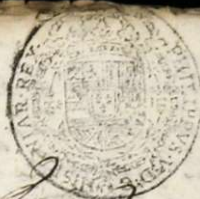 PHILIPPUS · V · D · G · HISPANIAR · REX